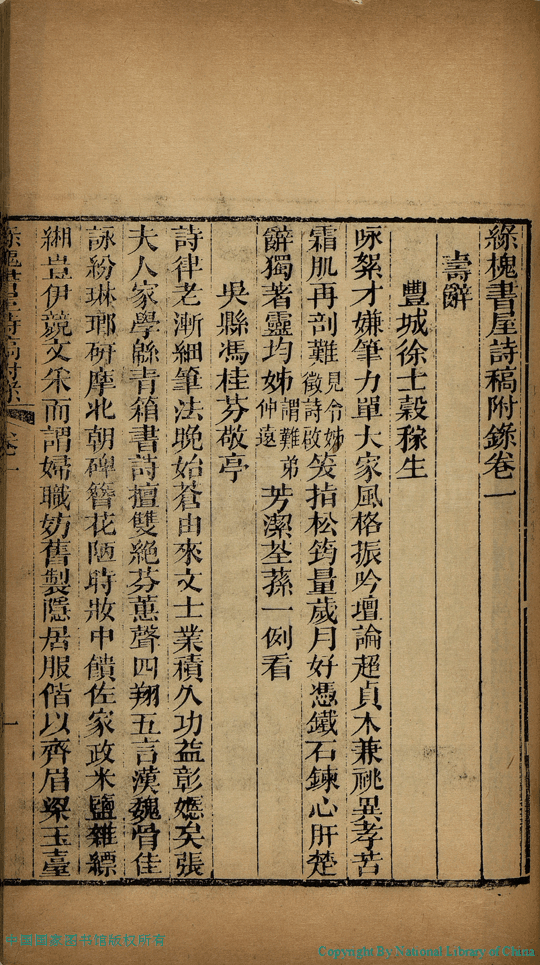 綠槐書屋詩稿附錄卷一
壽辭
豐城徐士穀稼生
咏絮才嫌筆力單大家風格振吟壇論超貞木兼祧異孝苦
霜肌再剖難見令姊徵詩啟笑指松筠量歲月好憑鐵石鍊心肝楚
辭獨著靈均姊謂難弟仲遠芳潔荃蓀一例看
吳縣馮桂芬敬亭
詩律老漸細筆法晚始蒼由來文士業積久功益彰嫕矣張
夫人家學緜青箱書詩擅雙絕芬蕙聲四翔五言漢魏骨佳
詠紛琳瑯研摩北朝碑簪花陋時妝中饋佐家政米鹽雜縹
緗豈伊競文采而謂婦職妨舊製隱居服偕以齊眉梁玉臺
綠槐書屋詩稿附錄 卷一 一
中國國家图书馆版权所有
Copyright By National Library of China